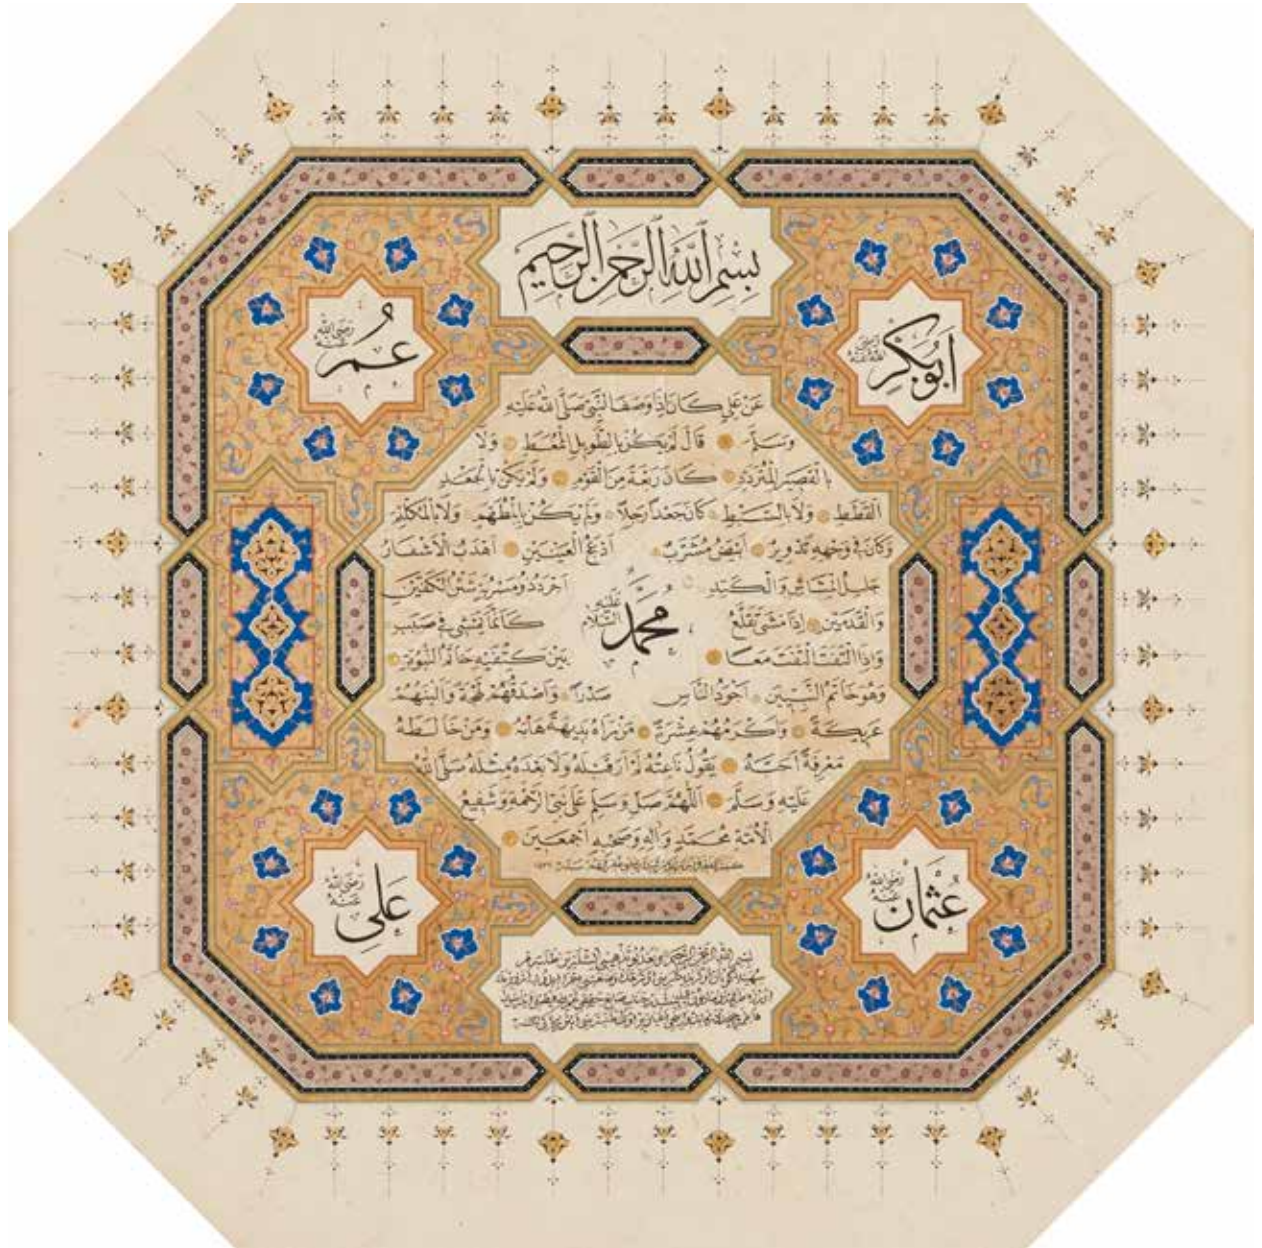 بِسْمِ اللهِ الرَّحْمٰنِ الرَّحِيمِ
اَبُوبَكْرْ رَضِيَ اللهُ عَنْهُ
عُمَرْ رَضِيَ اللهُ عَنْهُ
عَنْ عَلِيٍّ كَانَ اِذَا وَصَفَ النَّبِيَّ صَلَّى اللهُ عَلَيْهِ
وَسَلَّمَ قَالَ لَمْ يَكُنْ بِالطَّوِيلِ الْمُمَّغِطِ وَلَا
بِالْقَصِيرِ الْمُتَرَدِّدِ كَانَ رَبْعَةً مِنَ الْقَوْمِ وَلَمْ يَكُنْ بِالْجَعْدِ
الْقَطَطِ وَلَا بِالسَّبِطِ كَانَ جَعْدًا رَجِلًا وَلَمْ يَكُنْ بِالْمُطَهَّمِ وَلَا بِالْمُكَلْثَمِ
وَكَانَ فِي وَجْهِهِ تَدْوِيرٌ اَبْيَضُ مُشْرَبٌ اَدْعَجُ الْعَيْنَيْنِ اَهْدَبُ الْاَشْفَارِ
جَلِيلُ الْمُشَاشِ وَالْكَتَدِ اَجْرَدُ ذُو مَسْرُبَةٍ شَثْنُ الْكَفَّيْنِ
وَالْقَدَمَيْنِ اِذَا مَشَى تَقَلَّعَ كَاَنَّمَا يَمْشِي فِي صَبَبٍ
مُحَمَّدٌ عَلَيْهِ السَّلَامُ
وَاِذَا الْتَفَتَ الْتَفَتَ مَعًا بَيْنَ كَتِفَيْهِ خَاتَمُ النُّبُوَّةِ
وَهُوَ خَاتَمُ النَّبِيِّينَ اَجْوَدُ النَّاسِ صَدْرًا وَاَصْدَقُهُمْ لَهْجَةً وَاَلْيَنُهُمْ
عَرِيكَةً وَاَكْرَمُهُمْ عِشْرَةً مَنْ رَاٰهُ بَدِيهَةً هَابَهُ وَمَنْ خَالَطَهُ
مَعْرِفَةً اَحَبَّهُ يَقُولُ نَاعِتُهُ لَمْ اَرَ قَبْلَهُ وَلَا بَعْدَهُ مِثْلَهُ صَلَّى اللهُ
عَلَيْهِ وَسَلَّمَ اَللّٰهُمَّ صَلِّ وَسَلِّمْ عَلَى نَبِيِّ الرَّحْمَةِ وَشَفِيعِ
الْاُمَّةِ مُحَمَّدٍ وَاٰلِهِ وَصَحْبِهِ اَجْمَعِينَ
عُثْمَانْ رَضِيَ اللهُ عَنْهُ
عَلِي رَضِيَ اللهُ عَنْهُ